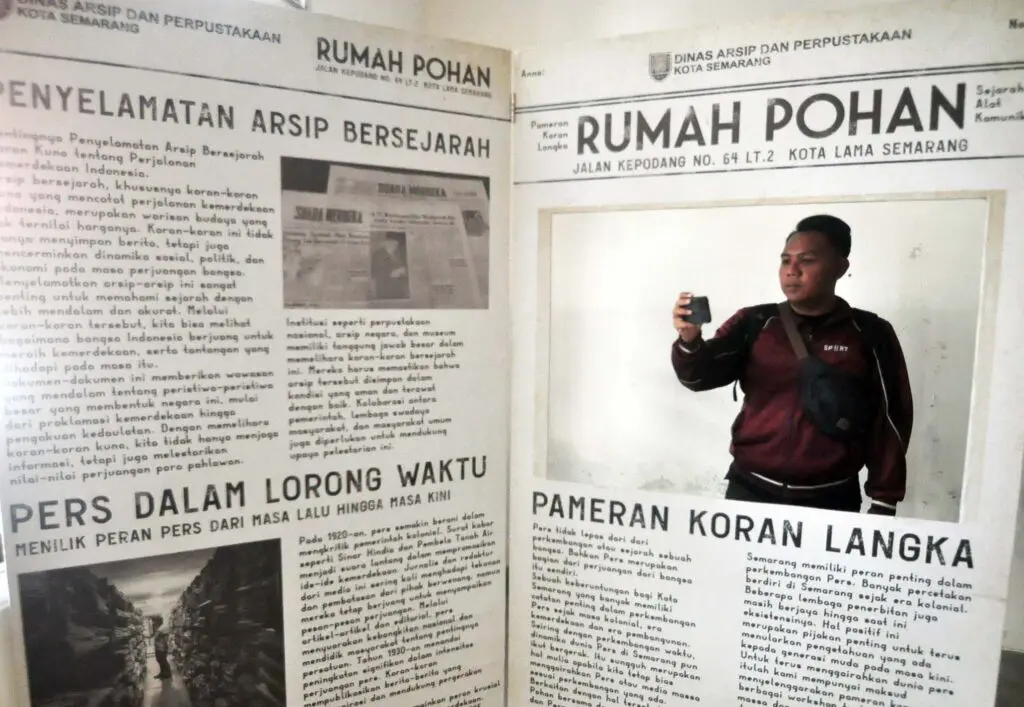 DINAS ARSIP DAN PERPUSTAKAAN
KOTA SEMARANG
RUMAH POHAN
JALAN KEPODANG NO. 64 LT.2 KOTA LAMA SEMARANG
PENYELAMATAN ARSIP BERSEJARAH
Penyelamatan Arsip Bersejarah
Kuno tentang Perjalanan
Indonesia.
bersejarah, khususnya koran-koran
yang mencatat perjalanan kemerdekaan
merupakan warisan budaya yang
ternilai harganya. Koran-koran ini tidak
menyimpan berita, tetapi juga
dinamika sosial, politik, dan
pada masa perjuangan bangsa.
arsip-arsip ini sangat
untuk memahami sejarah dengan
mendalam dan akurat. Melalui
koran-koran tersebut, kita bisa melihat
bagaimana bangsa Indonesia berjuang untuk
kemerdekaan, serta tantangan yang
pada masa itu.
ini memberikan wawasan
mendalam tentang peristiwa-peristiwa
besar yang membentuk negara ini, mulai
dari proklamasi kemerdekaan hingga
pengakuan kedaulatan. Dengan memelihara
koran-koran kuno, kita tidak hanya menjaga
informasi, tetapi juga melestarikan
nilai-nilai perjuangan para pahlawan.
SUARA MERDEKA
SUARA MERDEKA
Institusi seperti perpustakaan
nasional, arsip negara, dan museum
memiliki tanggung jawab besar dalam
memelihara koran-koran bersejarah
ini. Mereka harus memastikan bahwa
arsip tersebut disimpan dalam
kondisi yang aman dan terawat
dengan baik. Kolaborasi antara
pemerintah, lembaga swadaya
masyarakat, dan masyarakat umum
juga diperlukan untuk mendukung
upaya pelestarian ini.
PERS DALAM LORONG WAKTU
MENILIK PERAN PERS DARI MASA LALU HINGGA MASA KINI
Pada 1920-an, pers semakin berani dalam
mengkritik pemerintah kolonial. Surat kabar
seperti Sinar Hindia dan Pembela Tanah Air
menjadi suara lantang dalam mempromosikan
ide-ide kemerdekaan. Jurnalis dan redaktur
dari media ini sering kali menghadapi tekanan
dan pembatasan dari pihak berwenang, namun
mereka tetap berjuang untuk menyampaikan
pesan-pesan perjuangan. Melalui
artikel-artikel dan editorial, pers
menyuarakan kebangkitan nasional, dan
mendidik masyarakat tentang pentingnya
persatuan. Tahun 1930-an menandai
peningkatan signifikan dalam intensitas
perjuangan pers. Koran-koran
mempublikasikan berita-berita yang
dan mendukung pergerakan
peran krusial
Anno:
DINAS ARSIP DAN PERPUSTAKAAN
KOTA SEMARANG
No
Pameran
Koran
Langka
RUMAH POHAN
Sejarah
Alat
JALAN KEPODANG NO. 64 LT.2 KOTA LAMA SEMARANG
SPORT
PAMERAN KORAN LANGKA
Pers tidak lepas dari dari
perkembangan atau sejarah sebuah
bangsa. Bahkan Pers merupakan
bagian dari perjuangan dari bangsa
itu sendiri.
Sebuah keberuntungan bagi Kota
Semarang yang banyak memiliki
catatan penting dalam perkembangan
Pers sejak masa kolonial, era
kemerdekaan dan era pembangunan.
Seiring dengan perkembangan waktu,
dinamika dunia Pers di Semarang pun
ikut bergerak. Itu sungguh merupakan
hal mulia apabila kita tetap bisa
menggairahkan Pers atau media massa
sesuai perkembangan yang ada.
Berkaitan dengan hal
Pohan bersama
Semarang memiliki peran penting dalam
perkembangan Pers. Banyak percetakan
berdiri di Semarang sejak era kolonial.
Beberapa lembaga penerbitan juga
masih berjaya hingga saat ini
eksistensinya. Hal positif ini
merupakan pijakan penting untuk terus
menularkan pengetahuan yang ada
kepada generasi muda pada masa kini.
Untuk terus menggairahkan dunia pers
itulah kami mempunyai maksud
menyelenggarakan pameran
berbagai workshop